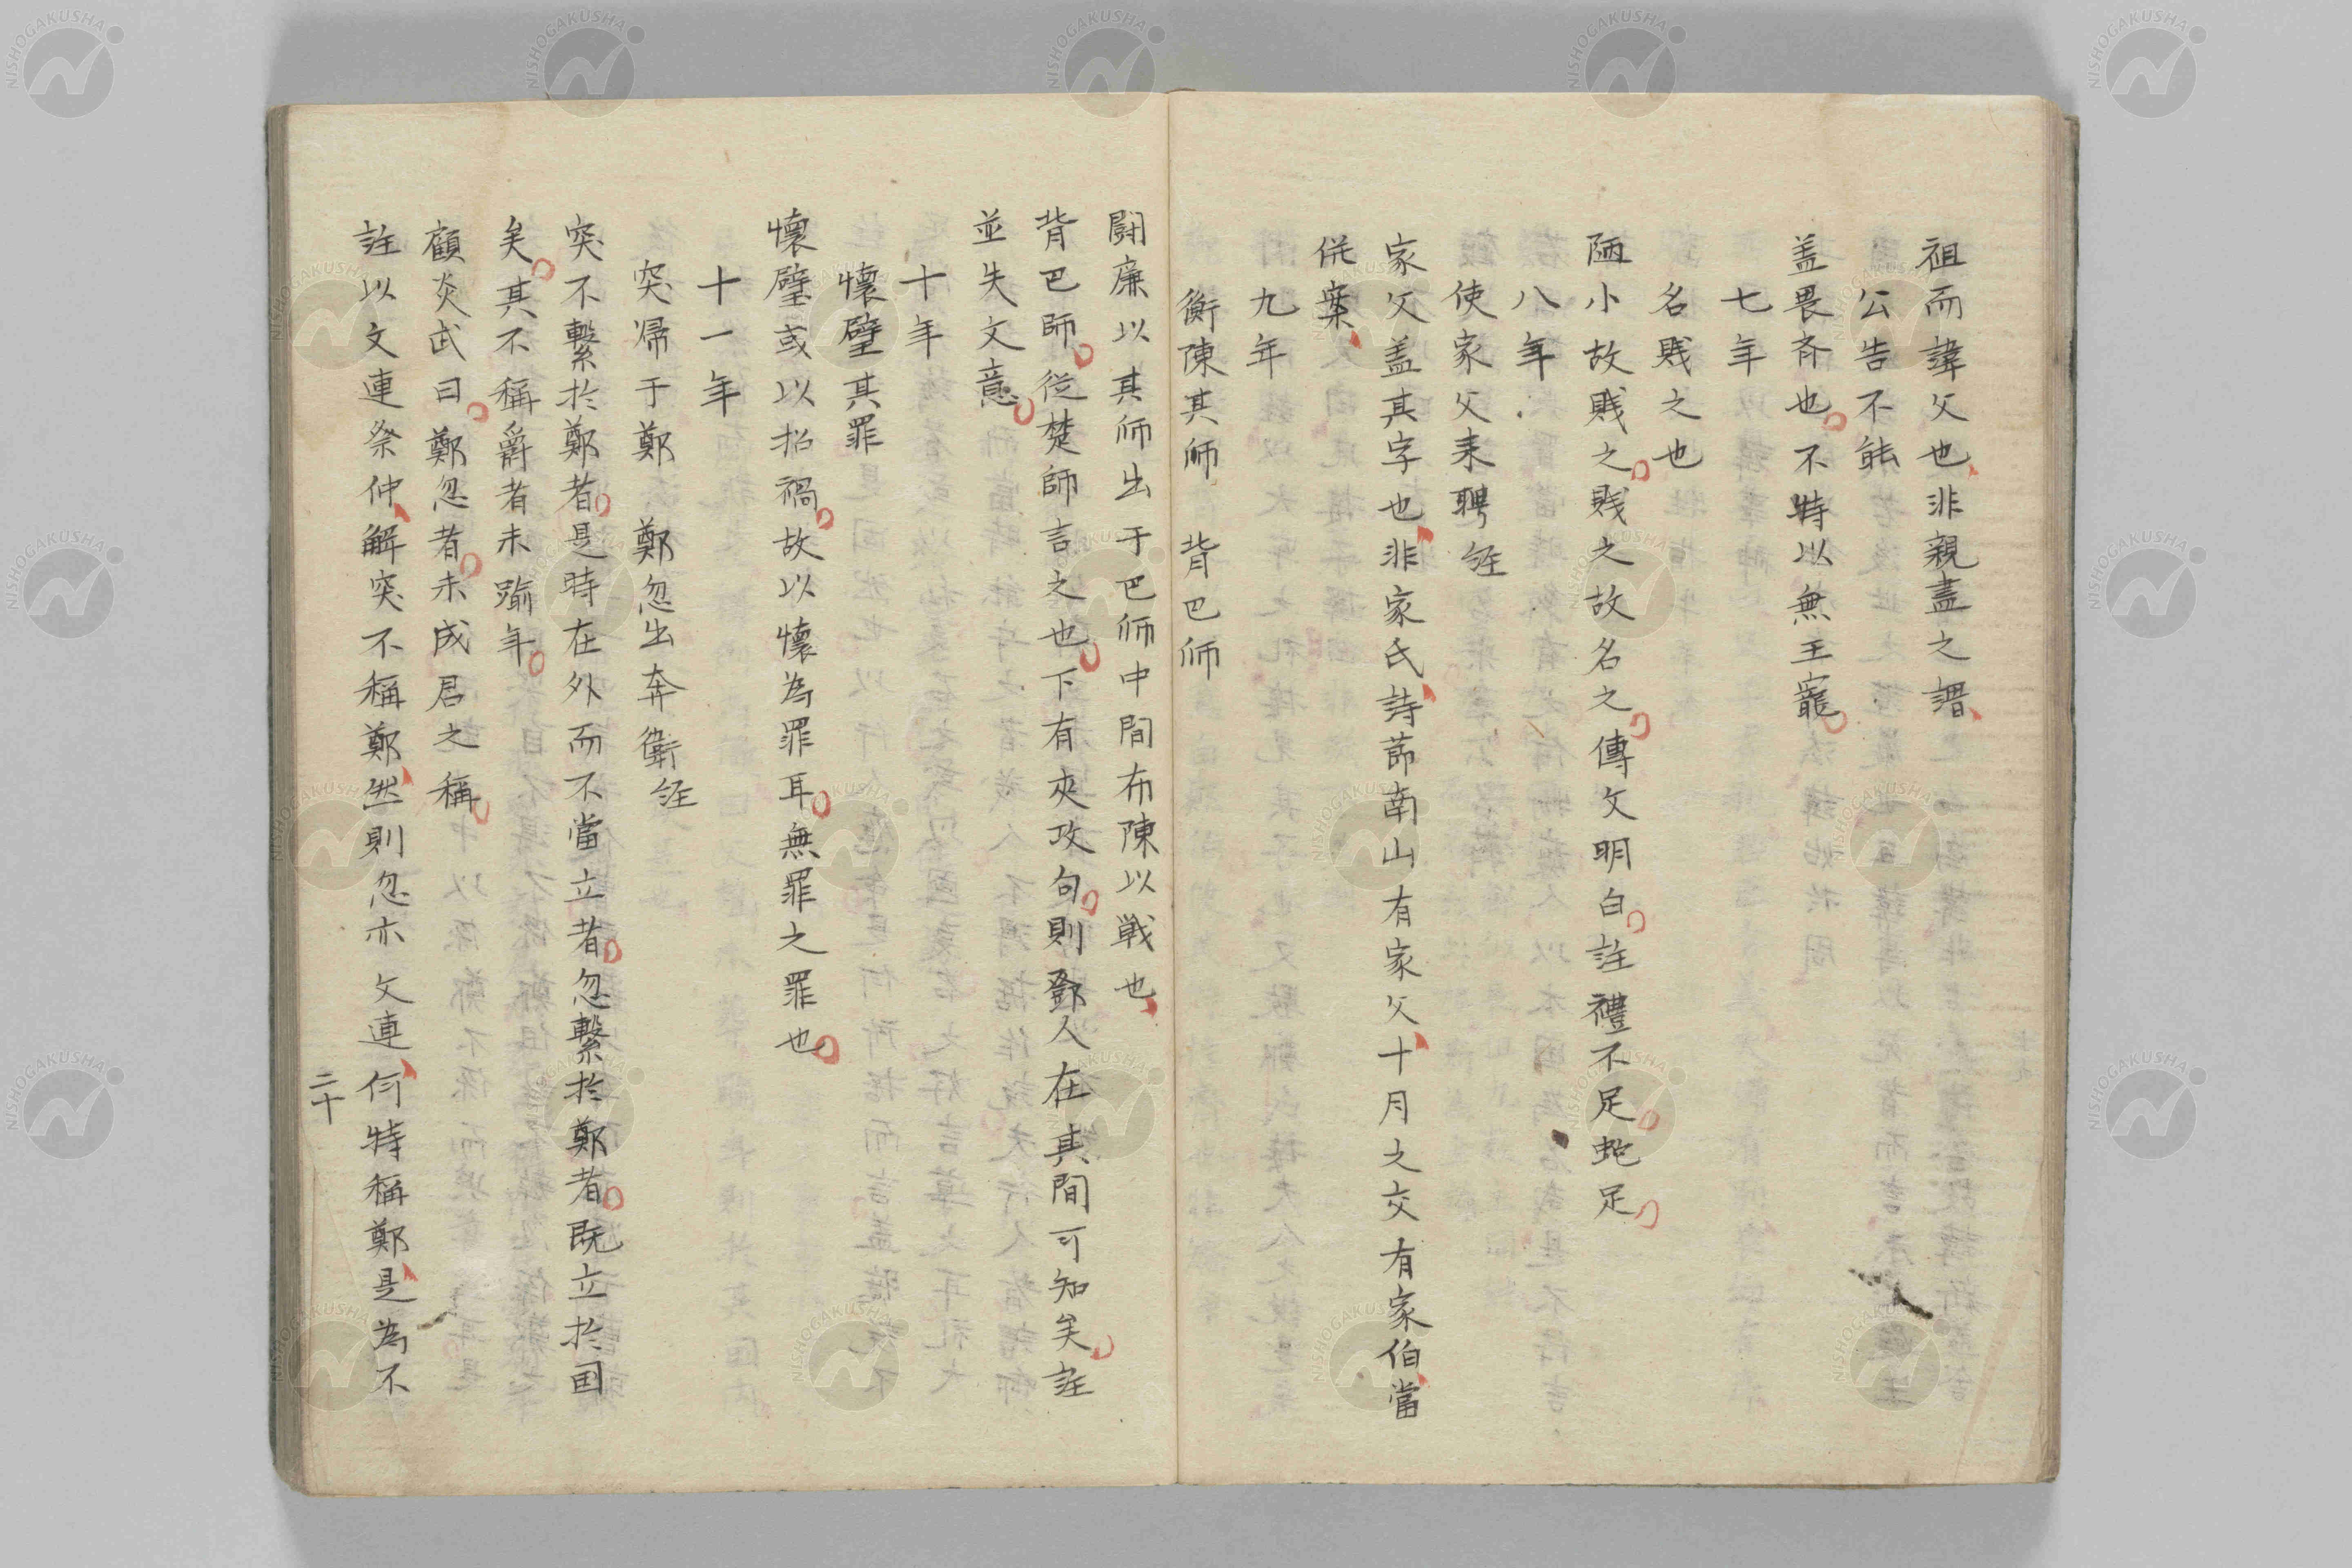 祖而諱父也非親盡之謂
公告不能
盖畏齊也不特以無王寵
七年
名賎之也
陋小故賎之賎之故名之傳文明白註禮不足蛇足
八年
使家父来聘経
家父盖其字也非家氏詩節南山有家父十月之交有家伯當
併案
九年
衡陳其師　背巴師
闘廉以其師出于巴師中間布陳以戦也
背巴師従楚師言之也下有夾攻句則鄧人在其間可知矣註
並失文意
十年
懐璧其罪
懐璧或以招禍故以懐為罪耳無罪之罪也
十一年
突帰于鄭　鄭忽出奔衛経
突不繋於鄭者是時在外而不當立者忽繋於鄭者既立於国
矣其不稱爵者未踰年
顧炎武曰鄭忽者未成君之稱
註以文連祭仲解突不稱鄭然則忽亦文連何特稱鄭是為不
二十
NISHOGAKUSHA